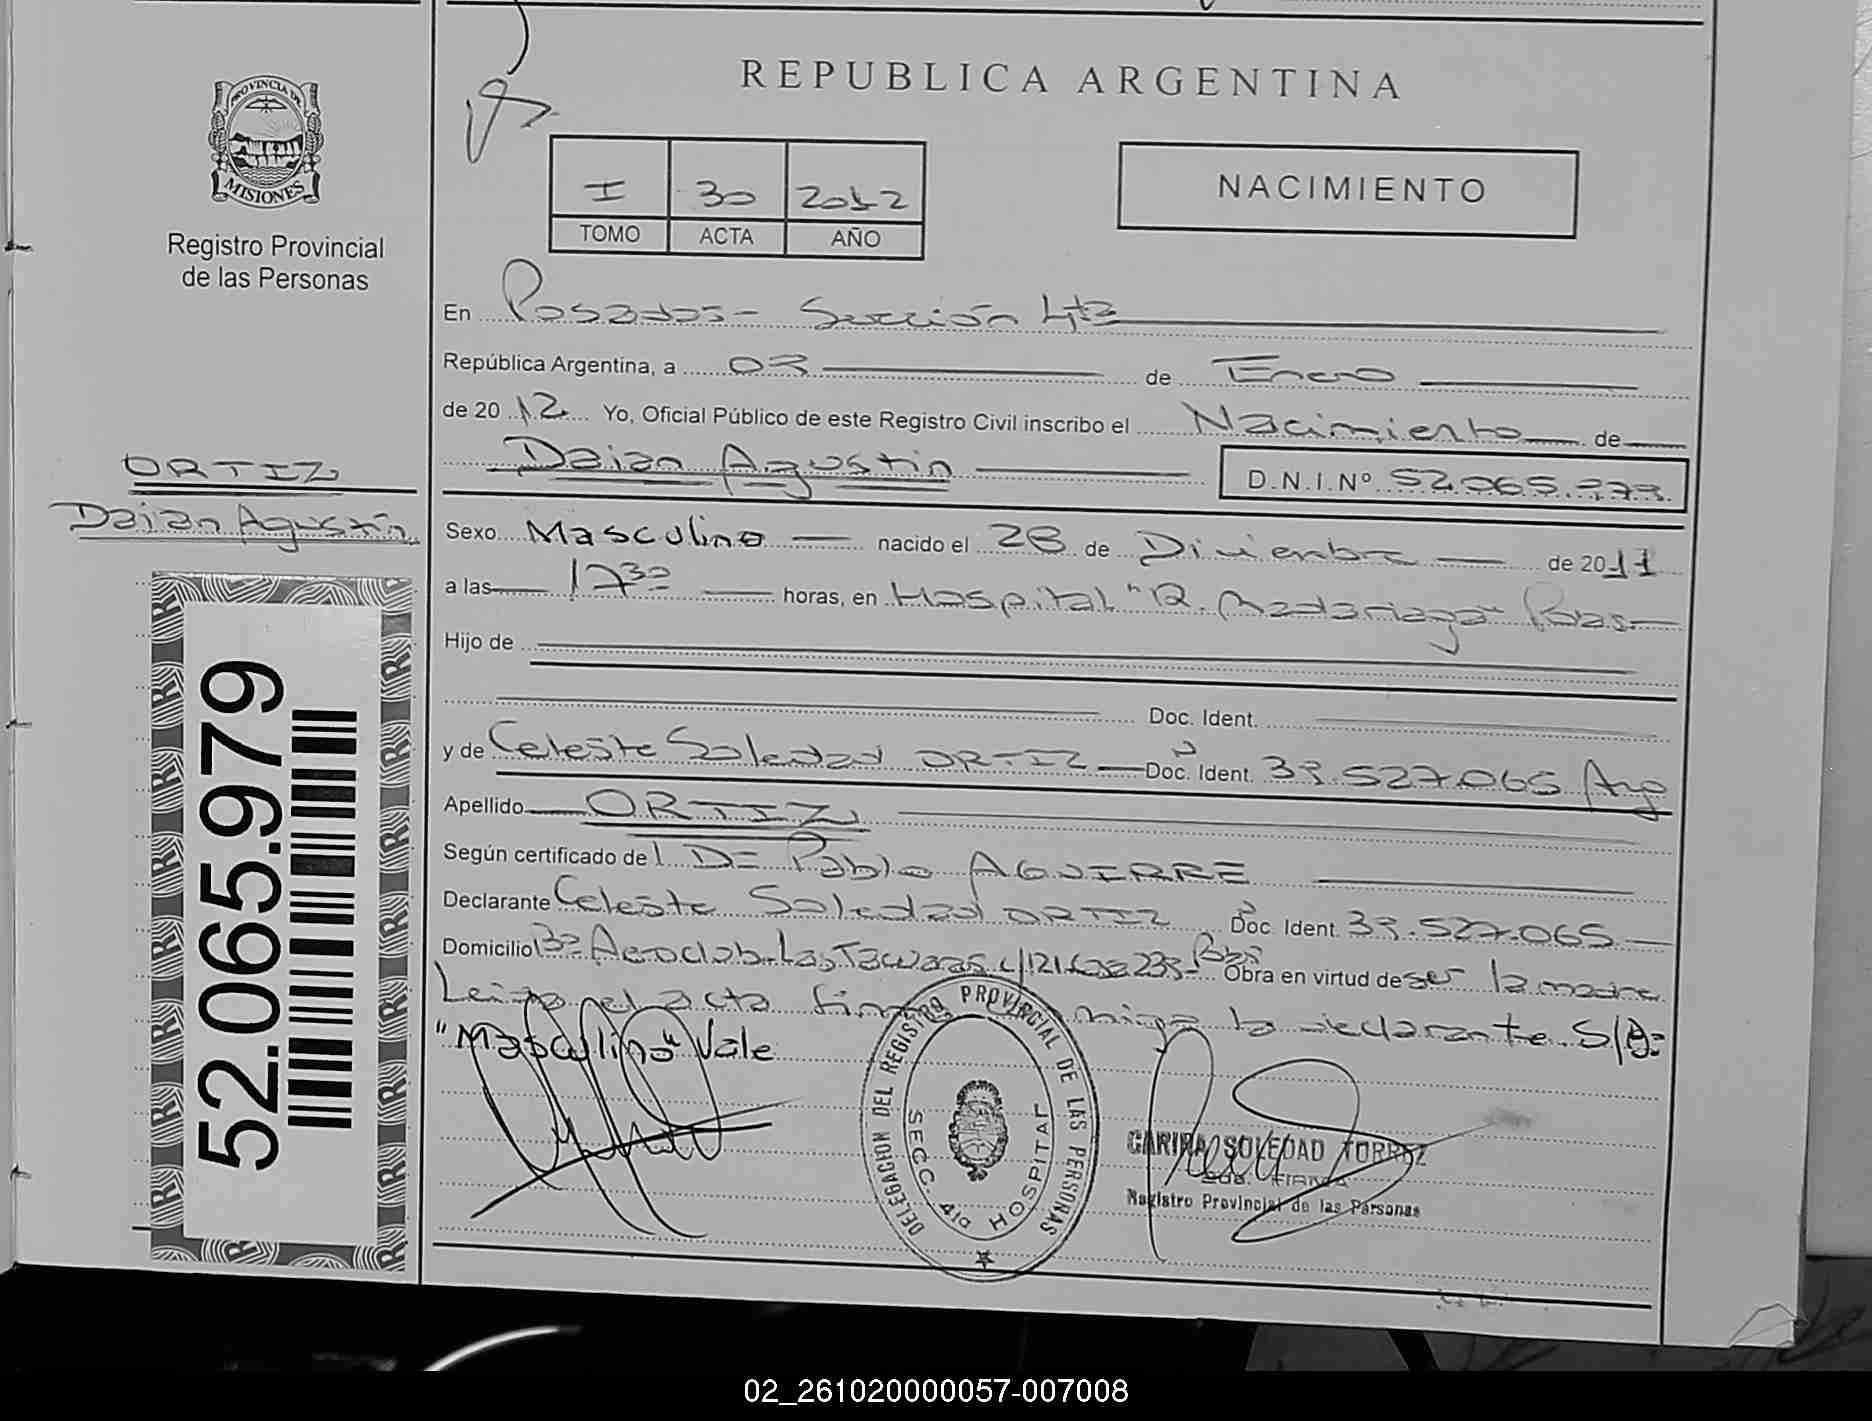 REPUBLICA ARGENTINA
PROVINCIA DE
MISIONES
Registro Provincial
de las Personas
I 30 2012
TOMO ACTA AÑO
NACIMIENTO
En Posadas - Sección 4ta
República Argentina, a 03 de Enero
de 2012 Yo, Oficial Público de este Registro Civil inscribo el Nacimiento de
Daian Agustin D.N.I.Nº 52.065.979.
ORTIZ
Daian Agustín
Sexo Masculino nacido el 28 de Diciembre de 2011
a las 17 30 horas, en Hospital "R. Madariaga" Pdas
Hijo de
Doc. Ident.
y de Celeste Soledad ORTIZ Doc. Ident. 33.527.065 Arg
Apellido ORTIZ
Según certificado de DE Pablo AGUIRRE
Declarante Celeste Soledad ORTIZ Doc. Ident. 33.527.065
Domicilio Bº Aeroclub Las Tacuaras Pdas Obra en virtud de ser la madre
Leida el acta firma la declarante.
"Masculino" Vale
52.065.979
DELEGACION DEL REGISTRO PROVINCIAL DE LAS PERSONAS
SECC. 4ta HOSPITAL
CARINA SOLEDAD TORREZ
2da. FIRMA
Registro Provincial de las Personas
02_261020000057-007008